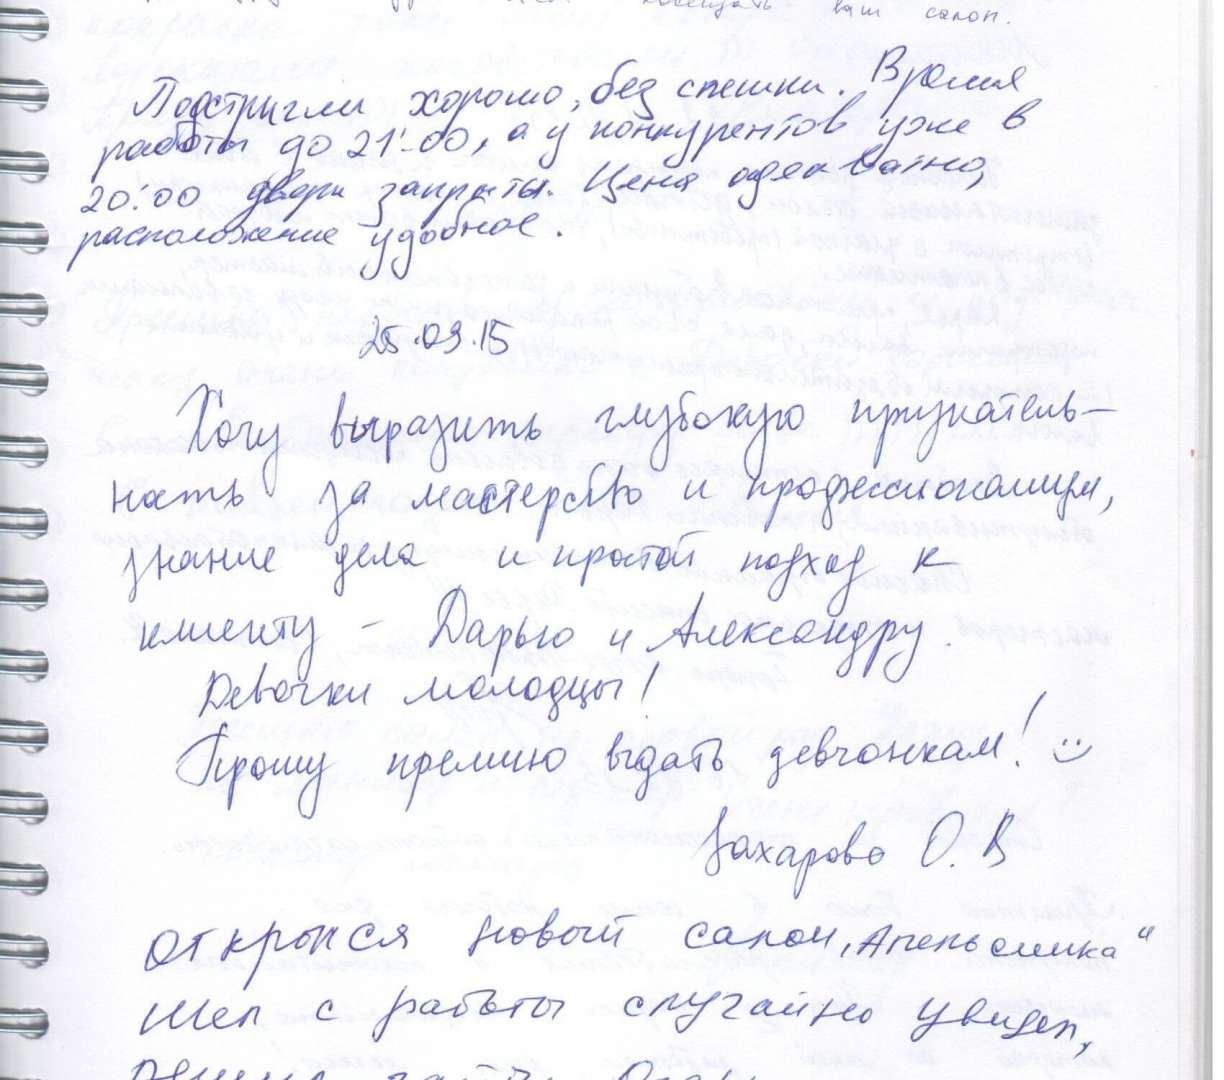 посещать ваш салон.
Подстригли хорошо, без спешки. Время
работы до 21:00, а у конкурентов уже в
20:00 двери закрыты. Цена адекватно,
расположение удобное.
25.09.15
Хочу выразить глубокую признатель-
ность за мастерство и профессионализм,
знание дела и простой подход к
клиенту - Дарью и Александру.
Девочки молодцы!
Прошу премию выдать девчонкам! :)
Захарова О.В
Открылся новый салон „Апельсинка“
Шел с работы случайно увидел,